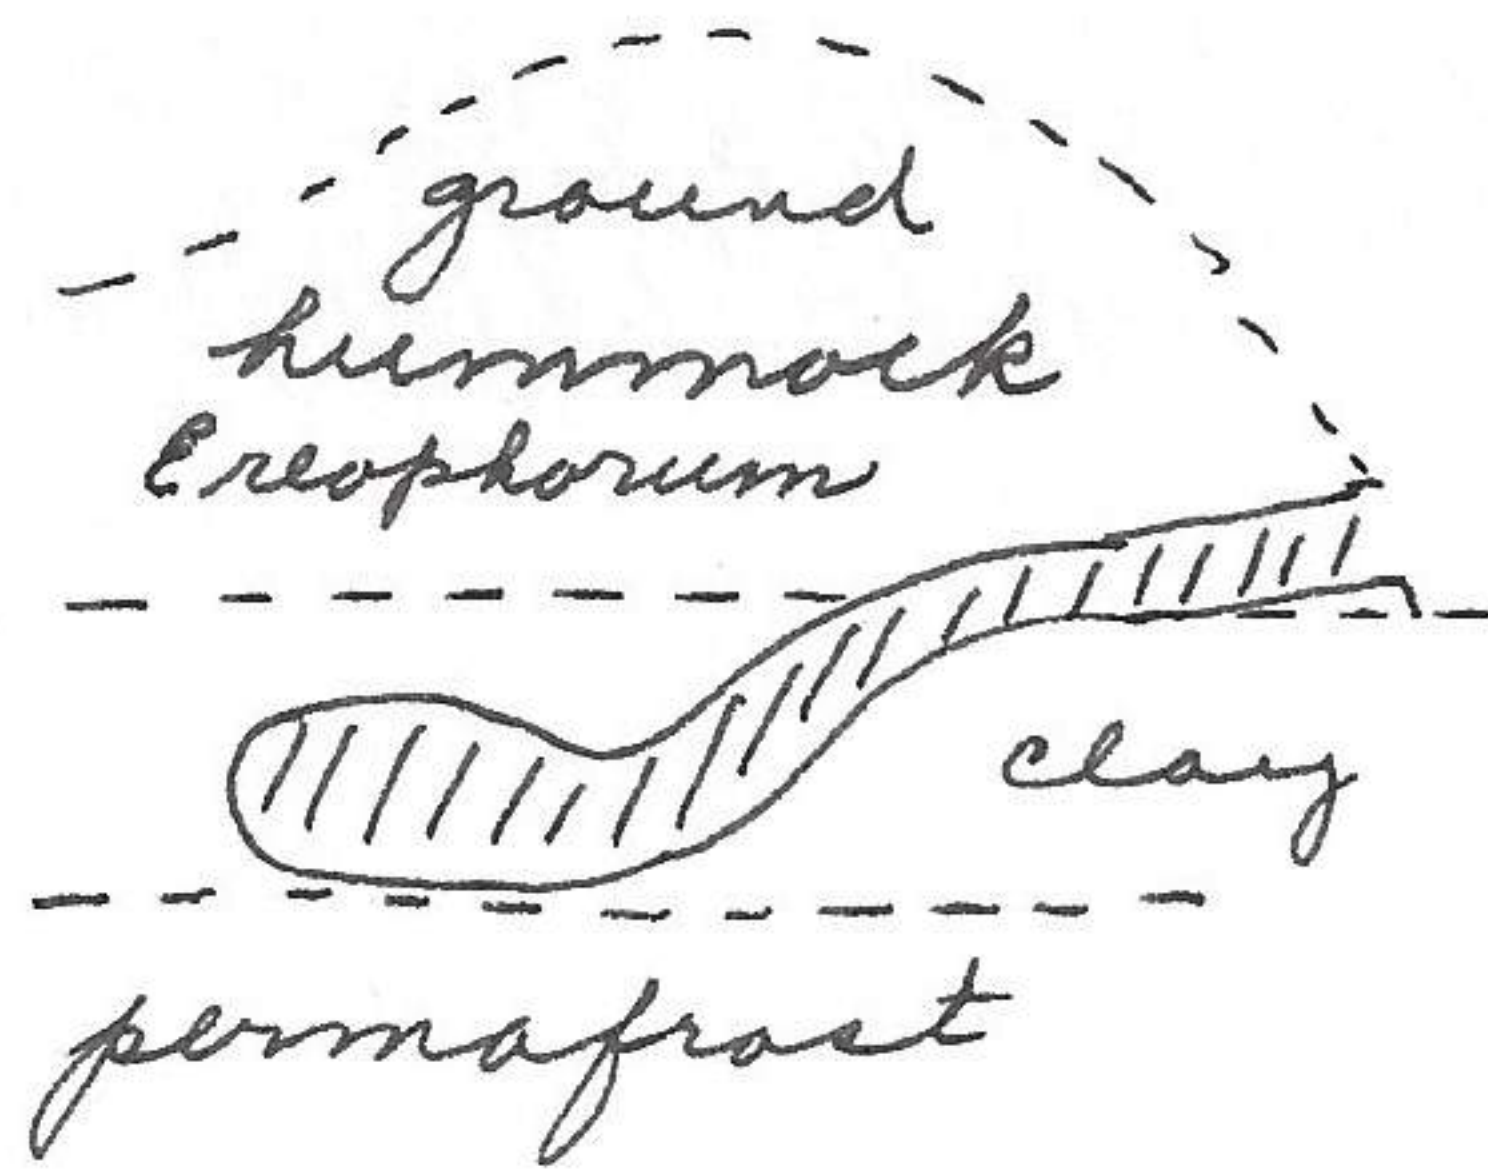 ground
hummock
Ereophorum
clay
permafrost